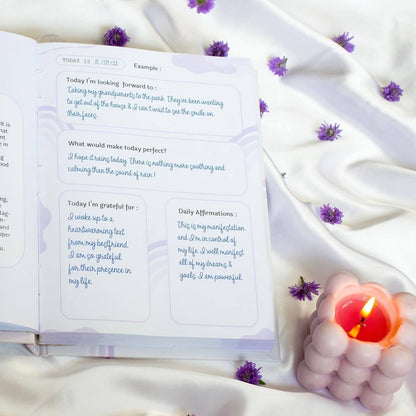 TODAY IS
Example :
Today I'm looking forward to :
Taking my grandparents to the park. They've been wanting
to get out of the house & I can't wait to see the smile on
their faces.
What would make today perfect?
I hope it rains today. There is nothing more soothing and
calming than the sound of rain!
Today I'm grateful for :
I woke up to a
heartwarming text
from my bestfriend.
I am so grateful
for their presence in
my life.
Daily Affirmations :
This is my manifestation
and I'm in control of
my life. I will manifest
all of my dreams &
goals. I am powerful.